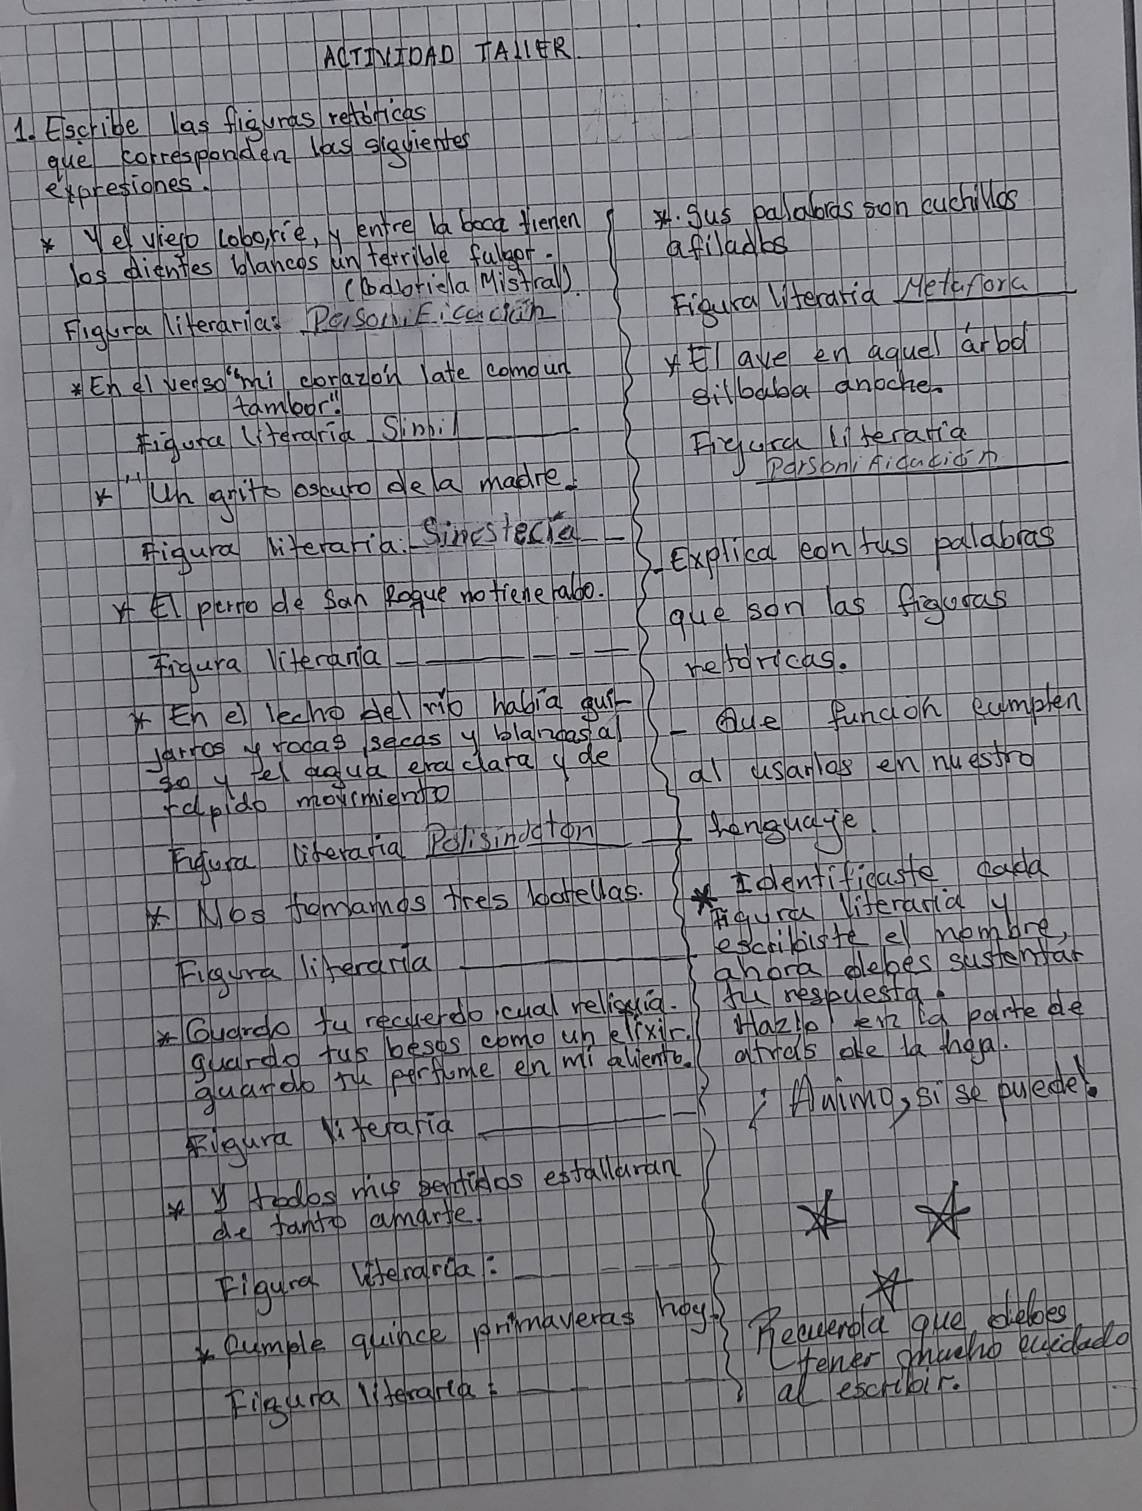 ACTIVIDAD TALLER
1. Escribe las figuras retóricas
que corresponden las siguientes
expresiones.
* Y el viejo loborie, y entre la boca tienen
los dientes blancos un terrible fulgor.
(Gabriela Mistral)
Figura literaria: Personificación
* En el verso "mi corazón late comoun
tambor".
Figura literaria Simil
* "Un grito oscuro de la madre.
Figura literaria: Sinestecia
* El perro de San Roque no tiene rabo.
Figura literaria
* En el lecho del río había gui-
jarros y rocas secas y blancas al
so y el agua era clara y de
rápido movimiento
Figura literaria Polisindeton
* Nos tomamos tres botellas.
Figura literaria
* Guardo tu recuerdo cual reliquia.
guardo tus besos como un elixir.
guardo tu perfume en mi aliento.
Figura literaria
* y todos mis sentidos estallaran
de tanto amarte.
Figura literaria:
* Cumple quince primaveras hoy.
Figura literaria:
*. Sus palabras son cuchillos
afilados
Figura literaria Metafora
* El ave en aquel árbol
silbaba anoche.
Figura literaria
Personificación
- Explica con tus palabras
que son las figuras
retóricas.
- Que función cumplen
al usarlas en nuestro
lenguaje.
* Identificaste cada
Figura literaria y
escribiste el nombre,
ahora debes sustentar
tu respuesta.
Hazlo en la parte de
atras de la hoja.
¡Animo, si se puede!
Recuerda que debes
tener mucho cuidado
al escribir.